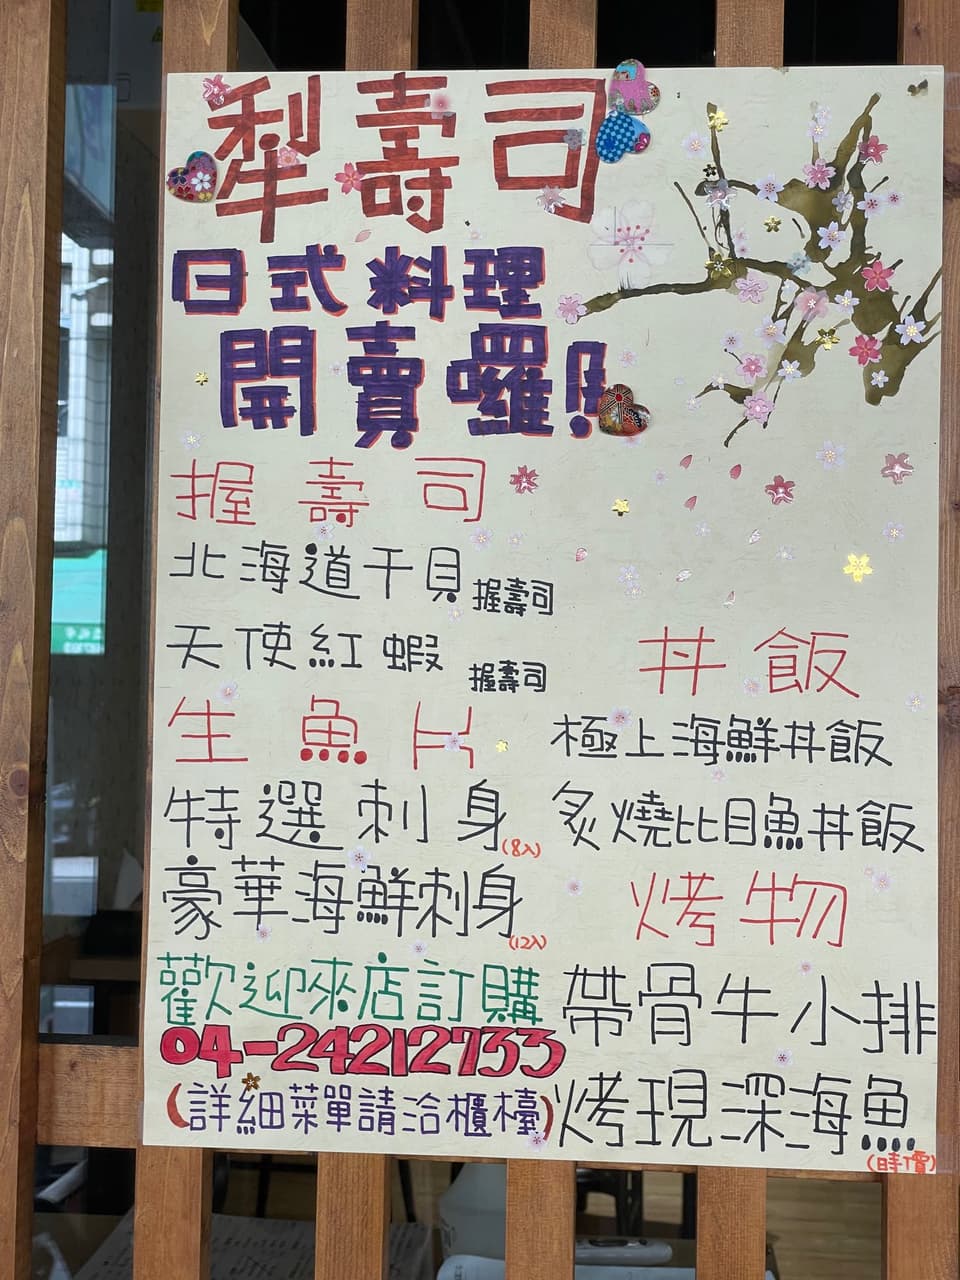 犁壽司
日式料理
開賣囉!
握壽司
北海道干貝 握壽司
天使紅蝦 握壽司
生魚片
特選刺身(8入)
豪華海鮮刺身(12入)
歡迎來店訂購
04-24212733
(詳細菜單請洽櫃檯)
丼飯
極上海鮮丼飯
炙燒比目魚丼飯
烤物
帶骨牛小排
烤現深海魚(時價)